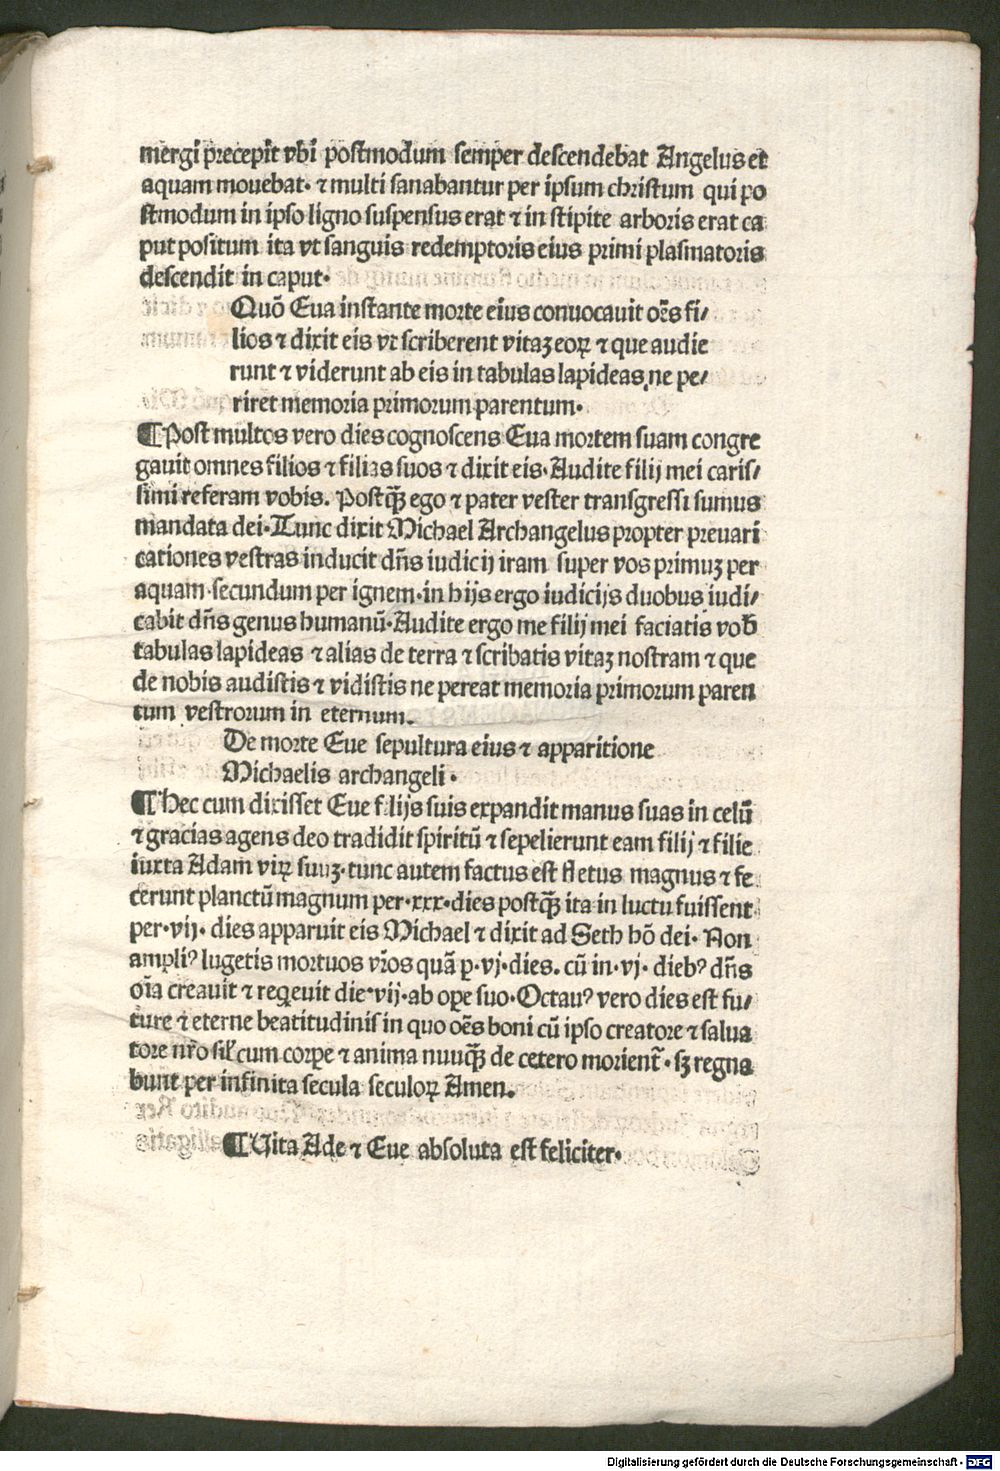 mergi precepit vbi postmodum semper descendebat Angelus et
aquam mouebat· ⁊ multi sanabantur per ipsum christum qui po
stmodum in ipso ligno suspensus erat ⁊ in stipite arboris erat ca
put positum ita vt sanguis redemptoris eius primi plasmatoris
descendit in caput·
Quō Eua instante morte eius conuocauit oēs fi/
lios ⁊ dixit eis vt scriberent vitaꝫ eoꝝ ⁊ que audie
runt ⁊ viderunt ab eis in tabulas lapideas ne pe/
riret memoria primorum parentum·
¶ Post multos vero dies cognoscens Eua mortem suam congre
gauit omnes filios ⁊ filias suos ⁊ dixit eis· Audite filij mei caris/
simi referam vobis. Postqꝫ̄ ego ⁊ pater vester transgressi sumus
mandata dei· Tunc dixit Michael Archangelus propter preuari
cationes vestras inducit dn̄s iudicij iram super vos primuꝫ per
aquam·secundum per ignem·in hijs ergo iudicijs duobus iudi/
cabit dn̄s genus humanū·Audite ergo me filij mei faciatis vob̄
tabulas lapideas ⁊ alias de terra ⁊ scribatis vitaꝫ nostram ⁊ que
de nobis audistis ⁊ vidistis ne pereat memoria primorum paren
tum vestrorum in eternum.
De morte Eue sepultura eius ⁊ apparitione
Michaelis archangeli·
¶ Hec cum dixisset Eue filijs suis expandit manus suas in celū
⁊ gracias agens deo tradidit spiritū ⁊ sepelierunt eam filij ⁊ filie
iuxta Adam viꝝ suuꝫ·tunc autem factus est fletus magnus ⁊ fe
cerunt planctū magnum per·xxx·dies postqꝫ̄ ita in luctu fuissent
per·vij· dies apparuit eis Michael ⁊ dixit ad Seth hō dei· Non
ampliꝰ lugetis mortuos vr̄os quā ꝑ·vj·dies. cū in·vj· diebꝰ dn̄s
oīa creauit ⁊ reqͥeuit die·vij·ab oꝑe suo·Octauꝰ vero dies est fu/
ture ⁊ eterne beatitudinis in quo oēs boni cū ipso creatore ⁊ salua
tore nr̄o sil̄ cum corꝑe ⁊ anima nuuqꝫ̄ de cetero morient̄·sꝫ regna
bunt per infinita secula seculoꝝ Amen.
¶ Vita Ade ⁊ Eue absoluta est feliciter·
Digitalisierung gefördert durch die Deutsche Forschungsgemeinschaft - DFG